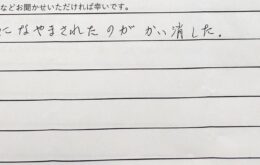 などお聞かせいただければ幸いです。
になやまされたのが かい消した.